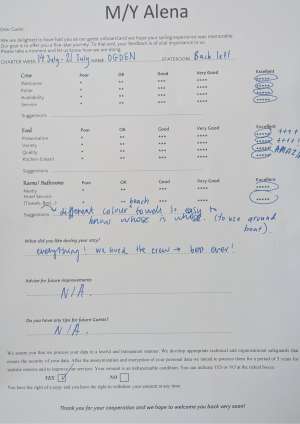 M/Y Alena
Dear Guest,
We are delighted to have had you as our guest onboard and we hope your sailing experience was memorable.
Our goal is to offer you a five star journey. To that end, your feedback is of vital importance to us.
Please take a moment and let us know how we are doing.
CHARTER WEEK 14 July - 21 July NAME OGDEN STATEROOM Back left
Crew Poor OK Good Very Good Excellent
Welcome * ** *** **** *****
Polite * ** *** **** *****
Availability * ** *** **** *****
Service * ** *** **** *****
Suggestions
Food Poor OK Good Very Good Excellent
Presentation * ** *** **** ***** ++++
Variety * ** *** **** ***** ++++
Quality * ** *** **** *****
Kitchen (clean) * ** *** **** *****
Suggestions
Rooms/ Bathrooms Poor OK Good Very Good Excellent
Neatly * ** *** **** *****
Hotel Service ** *** **** *****
(Towels,
beach
Suggestions different colour towels so easy to
know whose is whose. (to use around
boat).
What did you like during your stay?
everything! we loved the crew → best ever!
Advice for future improvements
N/A.
Do you have any tips for future Guests?
N/A.
We assure you that we process your data in a lawful and transparent manner. We develop appropriate technical and organizational safeguards that
ensure the security of your data. After the anonymization and encryption of your personal data we intend to process them for a period of 5 years for
statistic reasons and to improve our services. Your consent is an indispensable condition. You can indicate YES or NO at the related boxes.
YES ✓ NO
You have the right of access and you have the right to withdraw your consent at any time.
Thank you for your cooperation and we hope to welcome you back very soon!